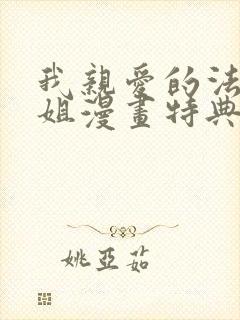 我親愛的法
姐漫畫特典
姚亞茹